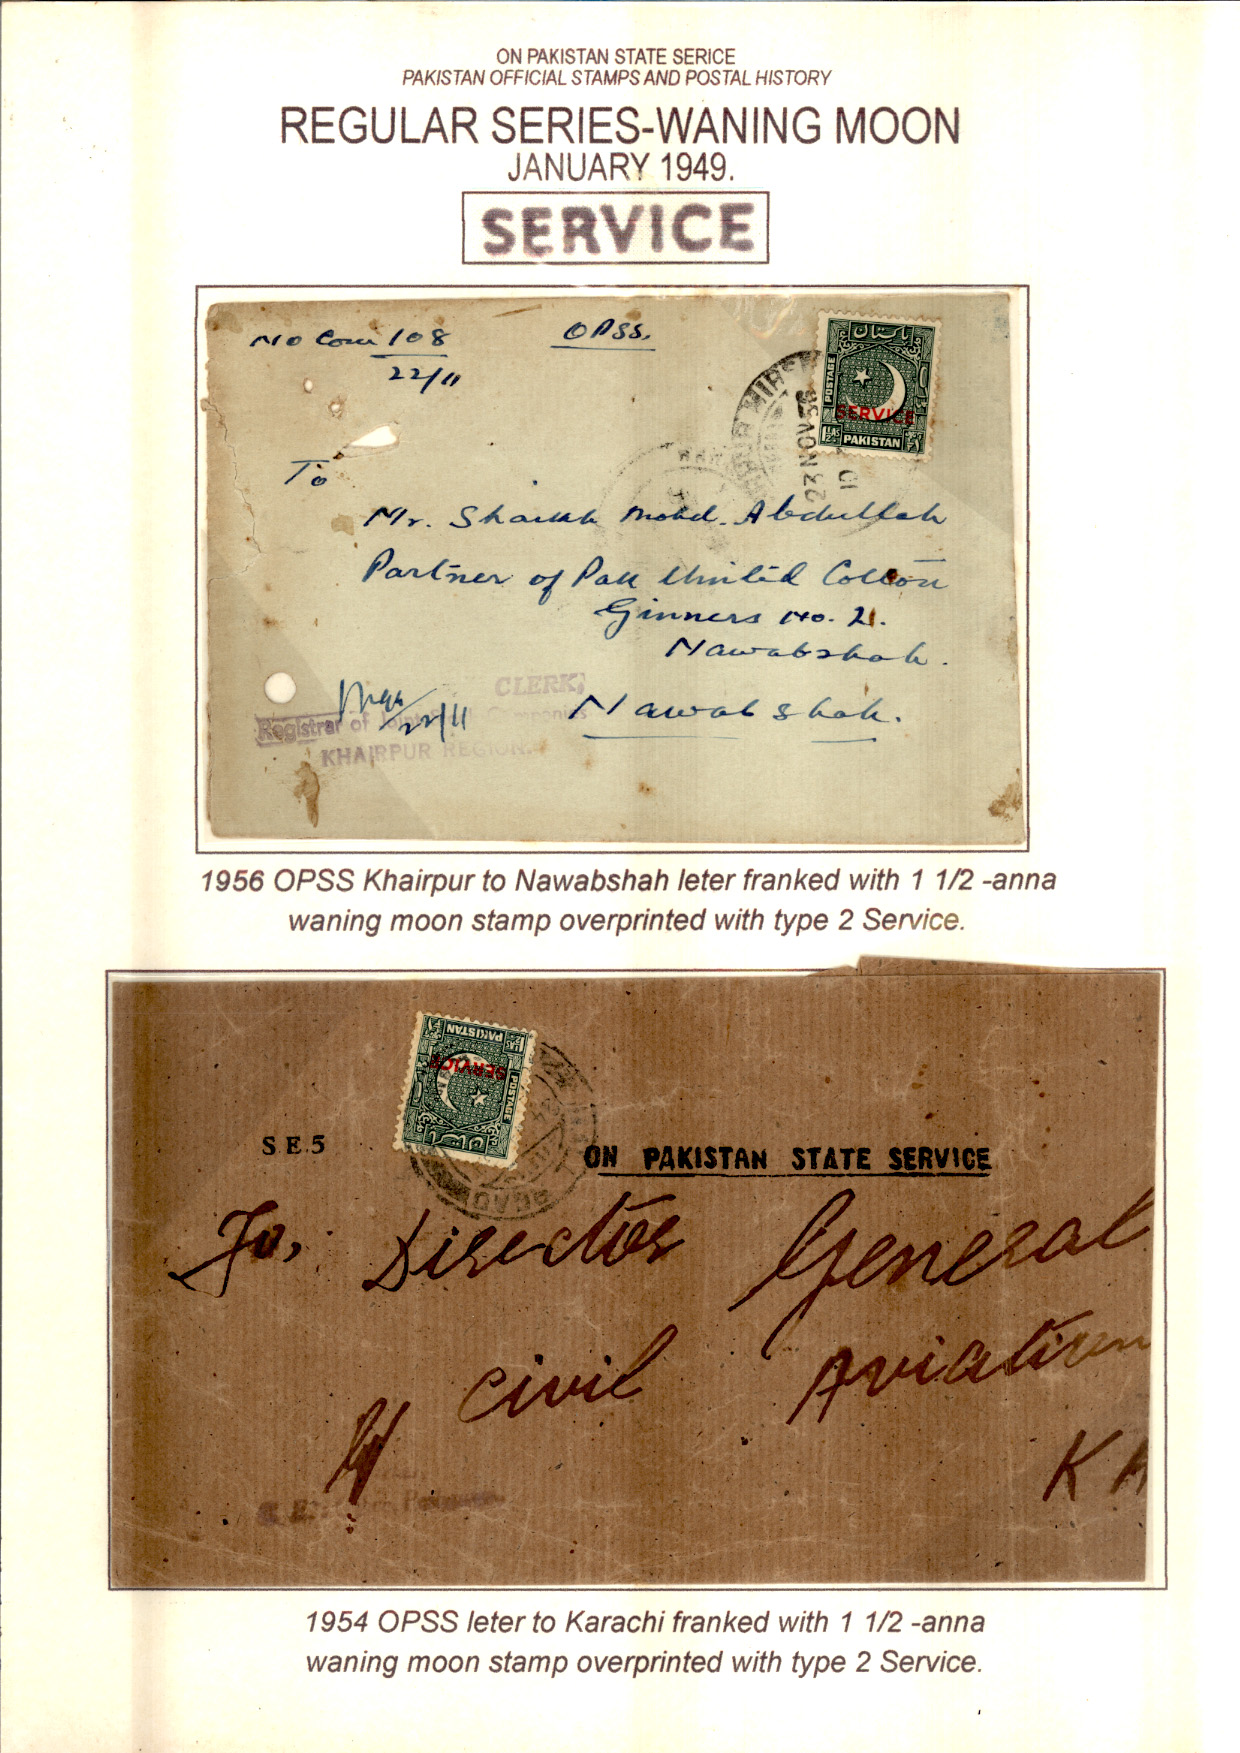 ON PAKISTAN STATE SERICE
PAKISTAN OFFICIAL STAMPS AND POSTAL HISTORY
REGULAR SERIES-WANING MOON
JANUARY 1949.
SERVICE
No Com 108
22/11
OPSS.
پاکستان
POSTAGE
SERVICE
1½ AS
PAKISTAN
23 NOV 56
10
To
Mr. Shaikh Mohd. Abdullah
Partner of Pak United Cotton
Ginners No. 2.
Nawabshah.
Nawabshah.
22/11
CLERK,
Registrar of Joint Companies
KHAIRPUR REGION.
1956 OPSS Khairpur to Nawabshah leter franked with 1 1/2 -anna
waning moon stamp overprinted with type 2 Service.
PAKISTAN
SERVICE
POSTAGE
پاکستان
S E 5
ON PAKISTAN STATE SERVICE
To, Director General
Civil Aviation
KA
1954 OPSS leter to Karachi franked with 1 1/2 -anna
waning moon stamp overprinted with type 2 Service.